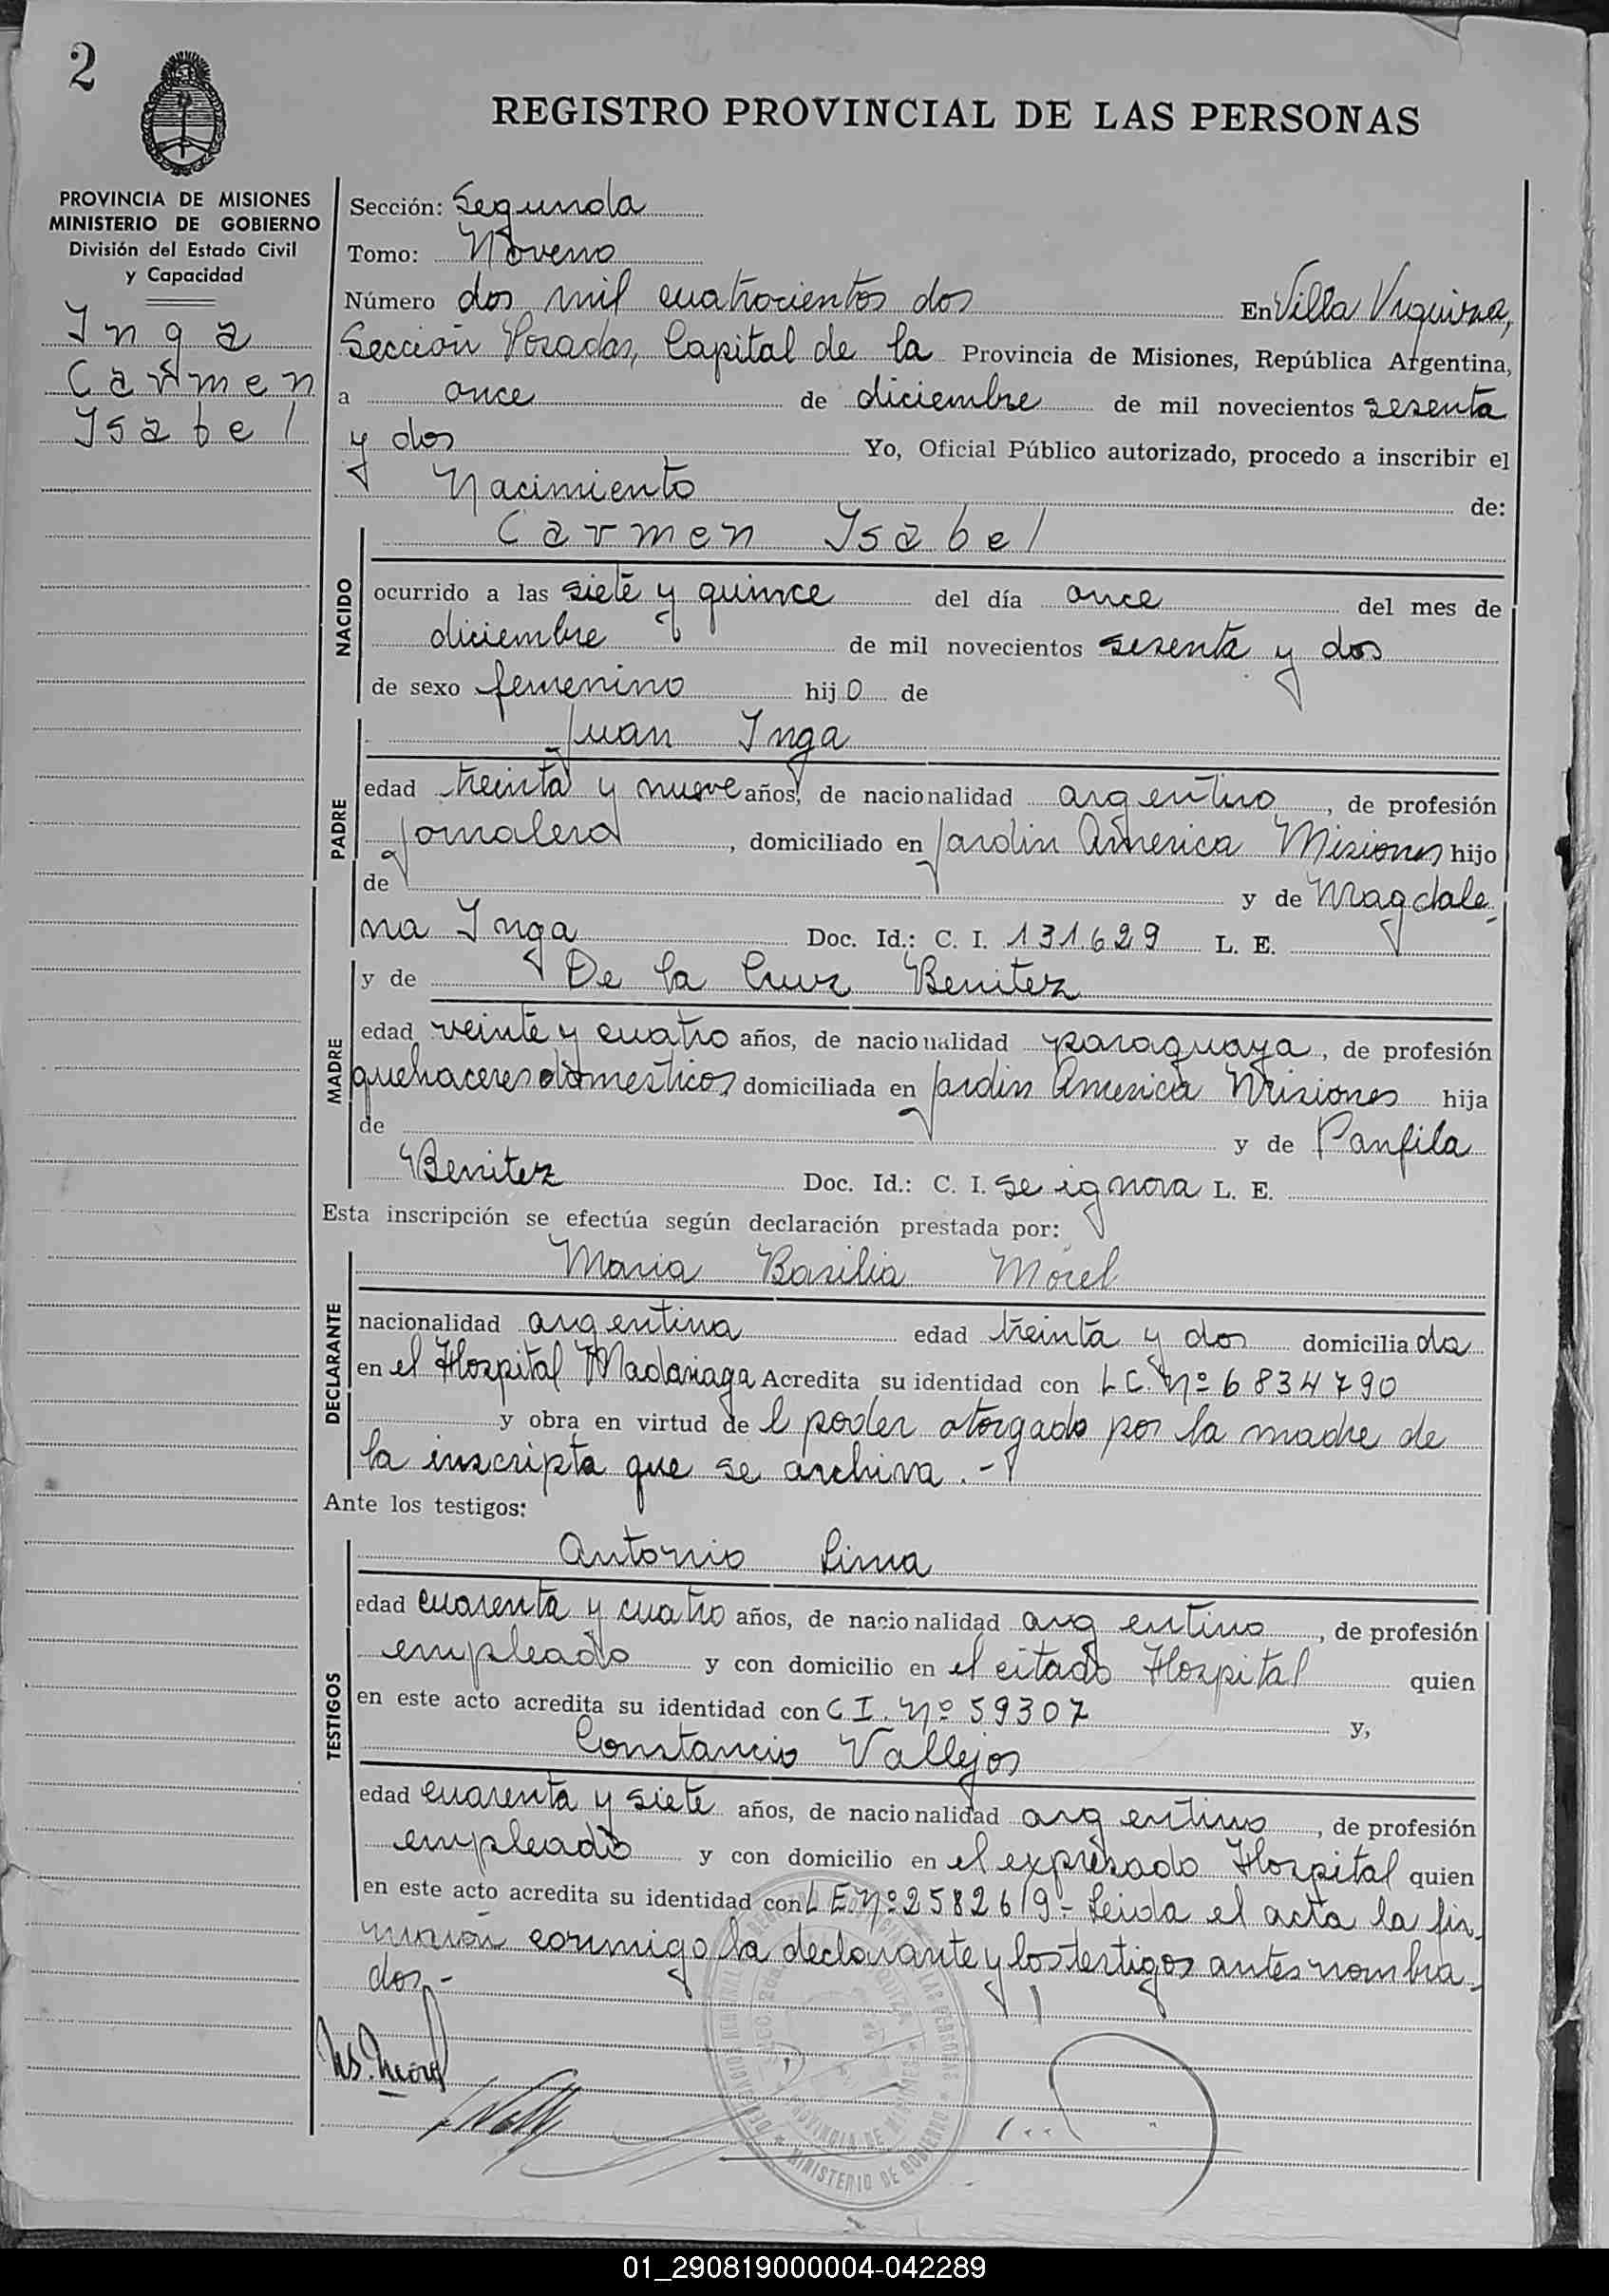 2
REGISTRO PROVINCIAL DE LAS PERSONAS
PROVINCIA DE MISIONES
MINISTERIO DE GOBIERNO
División del Estado Civil
y Capacidad
Inga
Carmen
Isabel
Sección: Segunda
Tomo: Noveno
Número dos mil cuatrocientos dos En Villa Urquiza,
Sección Posadas, Capital de la Provincia de Misiones, República Argentina,
a once de diciembre de mil novecientos sesenta
y dos Yo, Oficial Público autorizado, procedo a inscribir el
Nacimiento de:
NACIDO
Carmen Isabel
ocurrido a las siete y quince del día once del mes de
diciembre de mil novecientos sesenta y dos
de sexo femenino hijo de
PADRE
Juan Inga
edad treinta y nueve años, de nacionalidad argentino, de profesión
jornalero, domiciliado en Jardin America Misiones hijo
de y de Magdale-
na Inga Doc. Id.: C. I. 131.629 L. E.
MADRE
y de De la Cruz Benitez
edad veinte y cuatro años, de nacionalidad paraguaya, de profesión
quehaceres domesticos, domiciliada en Jardin America Misiones hija
de y de Panfila
Benitez Doc. Id.: C. I. se ignora L. E.
Esta inscripción se efectúa según declaración prestada por:
DECLARANTE
Maria Basilia Morel
nacionalidad argentina edad treinta y dos domiciliada
en el Hospital Madariaga Acredita su identidad con L C. Nº 6834790
y obra en virtud de l poder otorgado por la madre de
la inscripta que se archiva.-
Ante los testigos:
TESTIGOS
Antonio Lima
edad cuarenta y cuatro años, de nacionalidad argentino, de profesión
empleado y con domicilio en el citado Hospital quien
en este acto acredita su identidad con C I. Nº 59307 y,
Constancio Vallejos
edad cuarenta y siete años, de nacionalidad argentino, de profesión
empleado y con domicilio en el expresado Hospital quien
en este acto acredita su identidad con L E. Nº 2582619- Leida el acta la fir-
marón conmigo la declarante y los testigos antes nombra-
dos.-
MINISTERIO DE GOBIERNO
PROVINCIA DE MISIONES
01_290819000004-042289